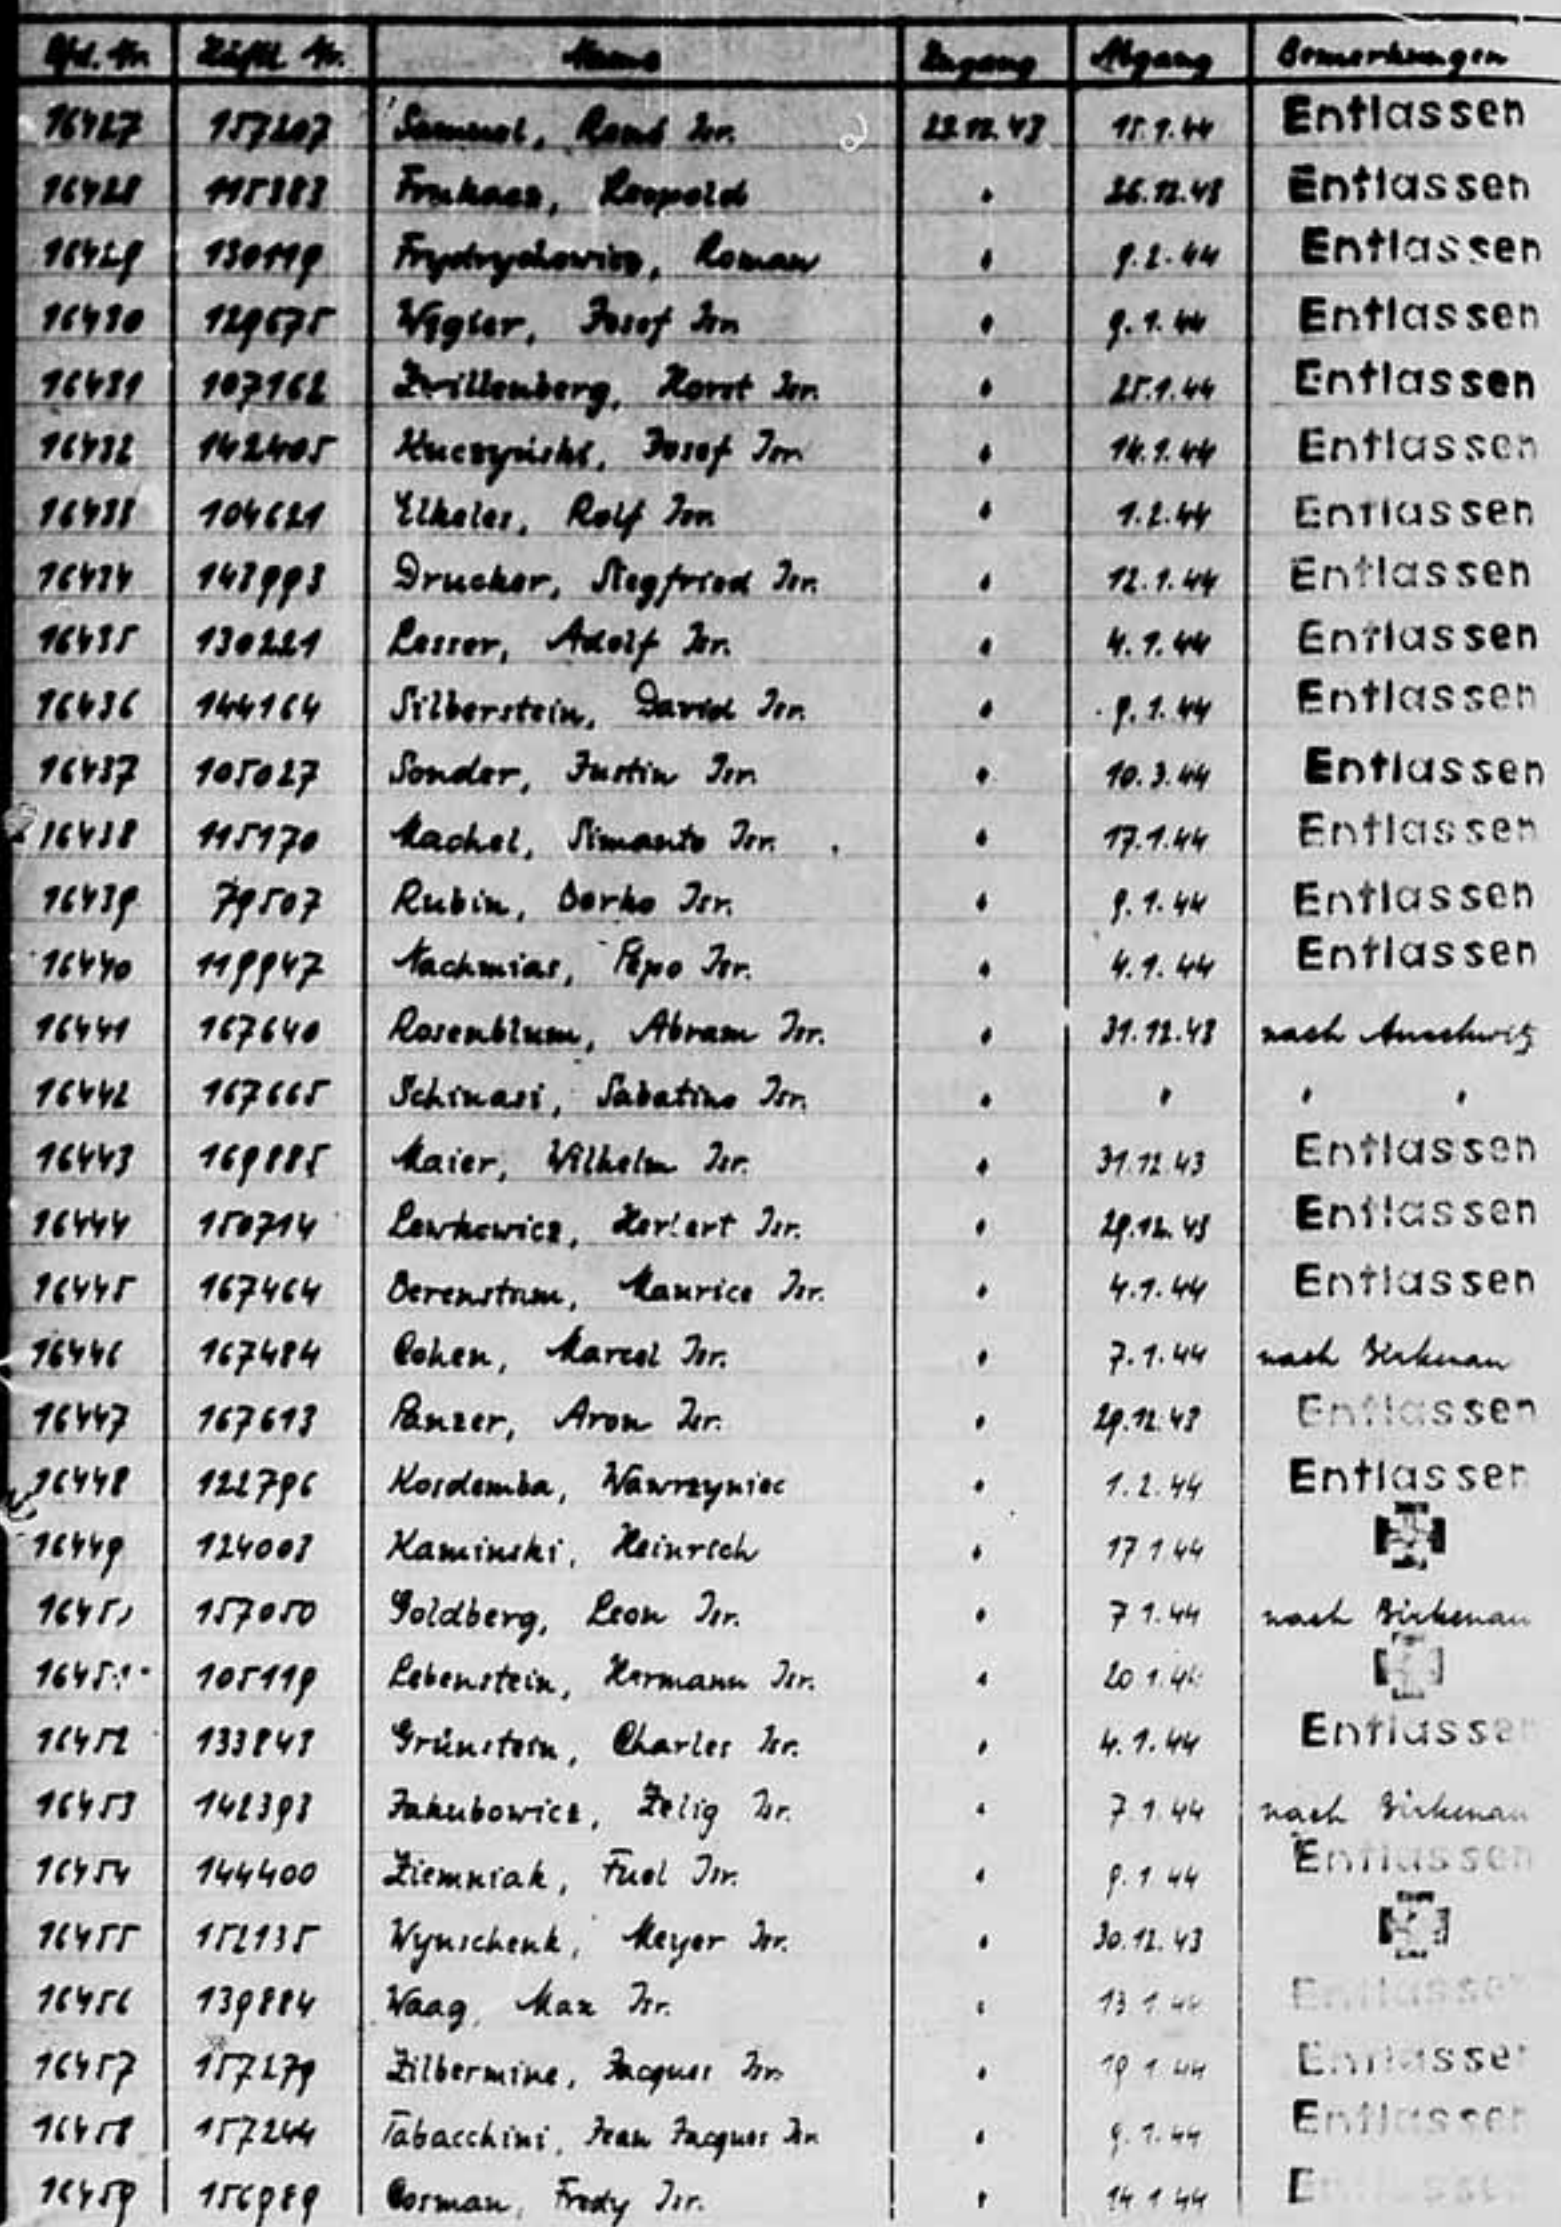 Lfd. Nr. Häftl. Nr. Name Zugang Abgang Bemerkungen
16427 157207 Samuel, René Isr. 22.12.43 15.1.44 Entlassen
16428 115383 Leopold " 26.12.43 Entlassen
16429 130119 Frydrychowicz, Roman " 9.2.44 Entlassen
16430 129675 Josef Isr. " 9.1.44 Entlassen
16431 107162 Zwillenberg, Horst Isr. " 25.1.44 Entlassen
16432 142405 Kuczyński, Josef Isr. " 14.1.44 Entlassen
16433 104621 Elkeles, Rolf Isr. " 1.2.44 Entlassen
16434 143993 Drucker, Siegfried Isr. " 12.1.44 Entlassen
16435 130221 Lesser, Adolf Isr. " 4.1.44 Entlassen
16436 144164 Silberstein, David Isr. " 9.1.44 Entlassen
16437 105027 Sonder, Justin Isr. " 10.3.44 Entlassen
16438 115170 Machel, Simanto Isr. " 17.1.44 Entlassen
16439 79507 Rubin, Berko Isr. " 9.1.44 Entlassen
16440 119947 Nachmias, Pepo Isr. " 4.1.44 Entlassen
16441 167640 Rosenblum, Abram Isr. " 31.12.43 nach Auschwitz
16442 167665 Schinasi, Sabatino Isr. " " " "
16443 169885 Maier, Wilhelm Isr. " 31.12.43 Entlassen
16444 150714 Lewkowicz, Herbert Isr. " 29.12.43 Entlassen
16445 167464 Berenstam, Maurice Isr. " 4.1.44 Entlassen
16446 167484 Cohen, Marcel Isr. " 7.1.44 nach Birkenau
16447 167613 Panzer, Aron Isr. " 29.12.43 Entlassen
16448 122796 Kosdemba, Wawrzyniec " 1.2.44 Entlassen
16449 124003 Kaminski, Heinrich " 17.1.44
157050 Goldberg, Leon Isr. " 7.1.44 nach Birkenau
105119 Lebenstein, Hermann Isr. " 20.1.44
16452 133843 Grünstein, Charles Isr. " 4.1.44 Entlassen
16453 142393 Jakubowicz, Zelig Isr. " 7.1.44 nach Birkenau
16454 144400 Ziemniak, Fuel Isr. " 9.1.44 Entlassen
16455 152135 Wynschenk, Meyer Isr. " 30.12.43
16456 139884 Waag, Max Isr. " 13.1.44 Entlassen
16457 157279 Zilbermine, Jacques Isr. " 19.1.44 Entlassen
16458 157244 Tabacchini, Jean Jacques Isr. " 9.1.44 Entlassen
16459 156989 Cosman, Fredy Isr. " 14.1.44 Entlassen